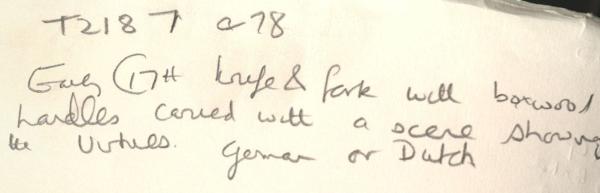 T2187 a78
Early C17th knife & fork with boxwood
handles carved with a scene showing
the Virtues. German or Dutch